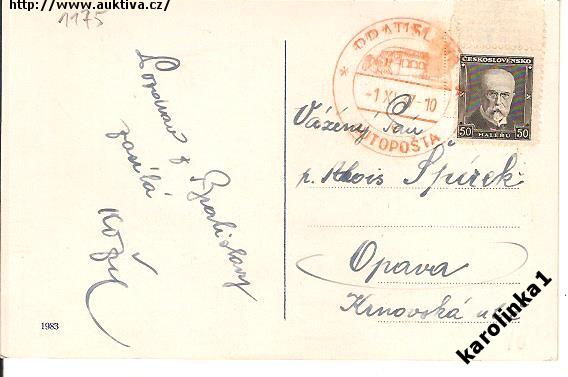 http://www.auktiva.cz/
1175
Pozdrav z
Bratislavy
zasílá
BRATISL
-1 XI 37-10
AUTOPOŠTA
ČESKOSLOVENSKO
50 HALÉŘŮ 50
Vážený Pán
p. Alois Špírek
Opava
Krnovská ul.
1983
karolinka1